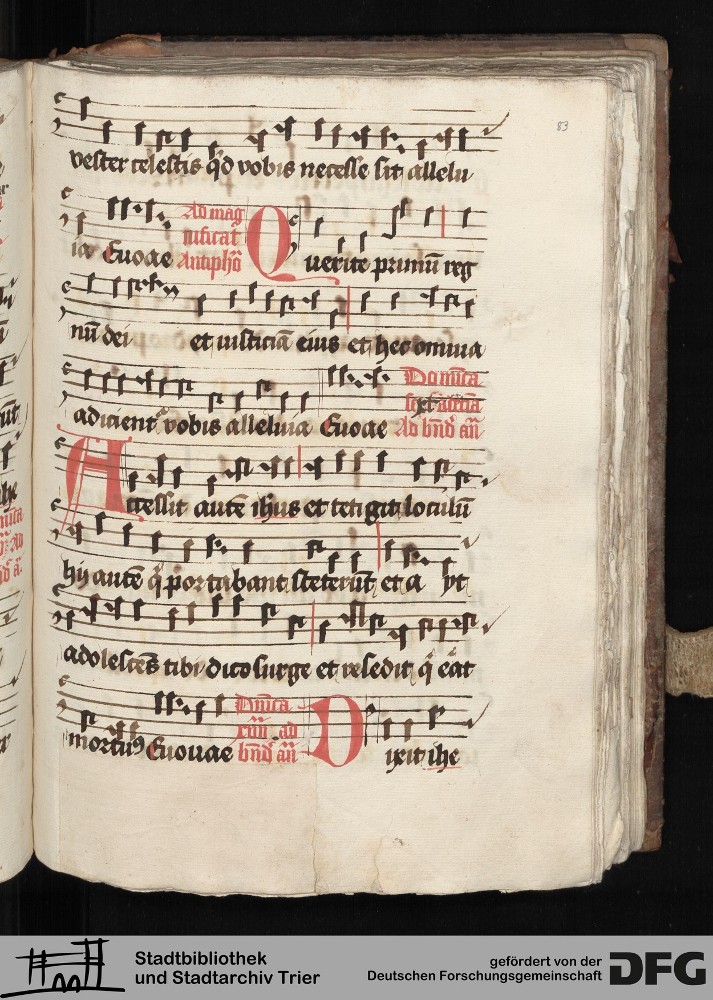 83
vester celestis qd vobis necesse sit allelu
ia Euoae Ad mag
nificat
Antipho Querite primū reg
nū dei et iusticiā eius et hec omnia
adicient vobis alleluia Euoae Dominica
Ad bnd an
Accessit autē ihus et tetigit loculū
hij autē q̄ portabant steterūt et a yt
adolescēs tibi dico surge et resedit q̄ eāt
mortu9 Euouae Dnica
xvii ad
bnd an Dixit ihe
Stadtbibliothek
und Stadtarchiv Trier
gefördert von der
Deutschen Forschungsgemeinschaft
DFG